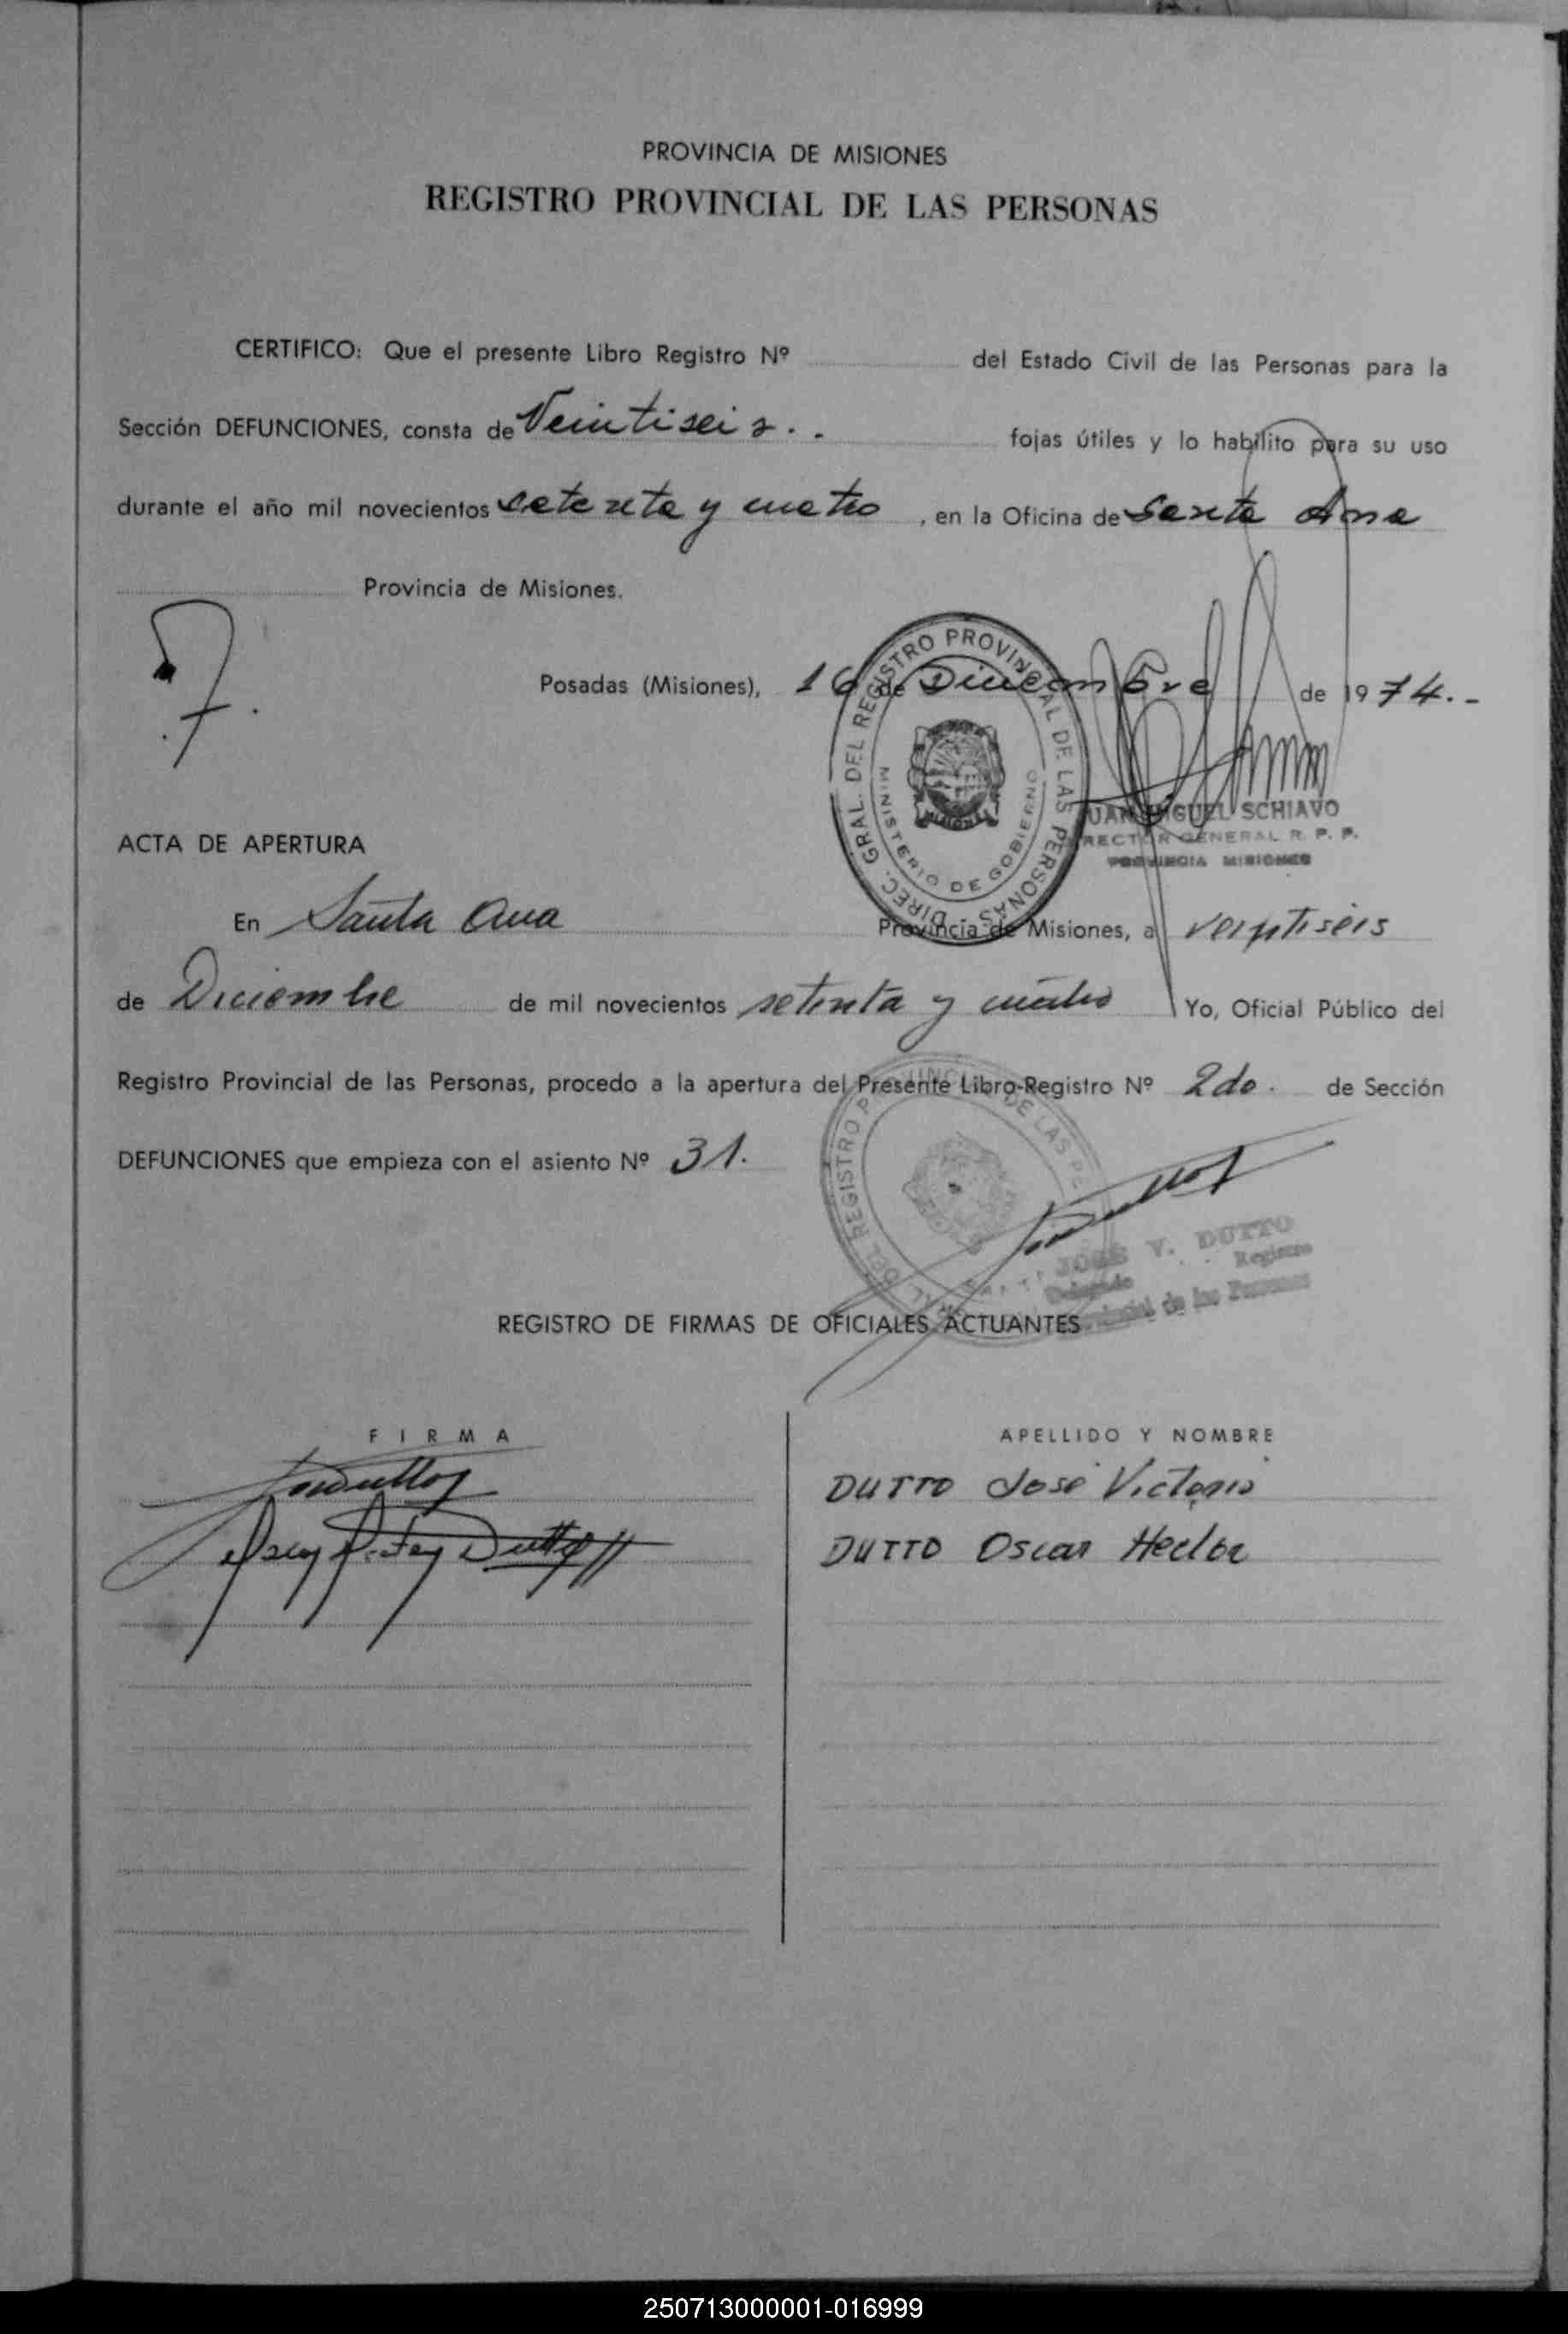 PROVINCIA DE MISIONES
REGISTRO PROVINCIAL DE LAS PERSONAS
CERTIFICO: Que el presente Libro Registro Nº del Estado Civil de las Personas para la
Sección DEFUNCIONES, consta de Veintiseis.. fojas útiles y lo habilito para su uso
durante el año mil novecientos setenta y cuatro, en la Oficina de Santa Ana
Provincia de Misiones.
Posadas (Misiones), 16 de Diciembre de 1974.-
DIREC. GRAL. DEL REGISTRO PROVINCIAL DE LAS PERSONAS -
MINISTERIO DE GOBIERNO
MISIONES
JUAN MIGUEL SCHIAVO
DIRECTOR GENERAL R. P. P.
PROVINCIA MISIONES
ACTA DE APERTURA
En Santa Ana Provincia de Misiones, a veintiseis
de Diciembre de mil novecientos setenta y cuatro Yo, Oficial Público del
Registro Provincial de las Personas, procedo a la apertura del Presente Libro-Registro Nº 2do. de Sección
DEFUNCIONES que empieza con el asiento Nº 31.
DEL REGISTRO PROVINCIAL DE LAS PE
JOSE V. DUTTO
Delegado Registro
Provincial de las Personas
REGISTRO DE FIRMAS DE OFICIALES ACTUANTES
FIRMA APELLIDO Y NOMBRE
DUTTO José Victorio
Oscar Dutto DUTTO Oscar Hector
250713000001-016999